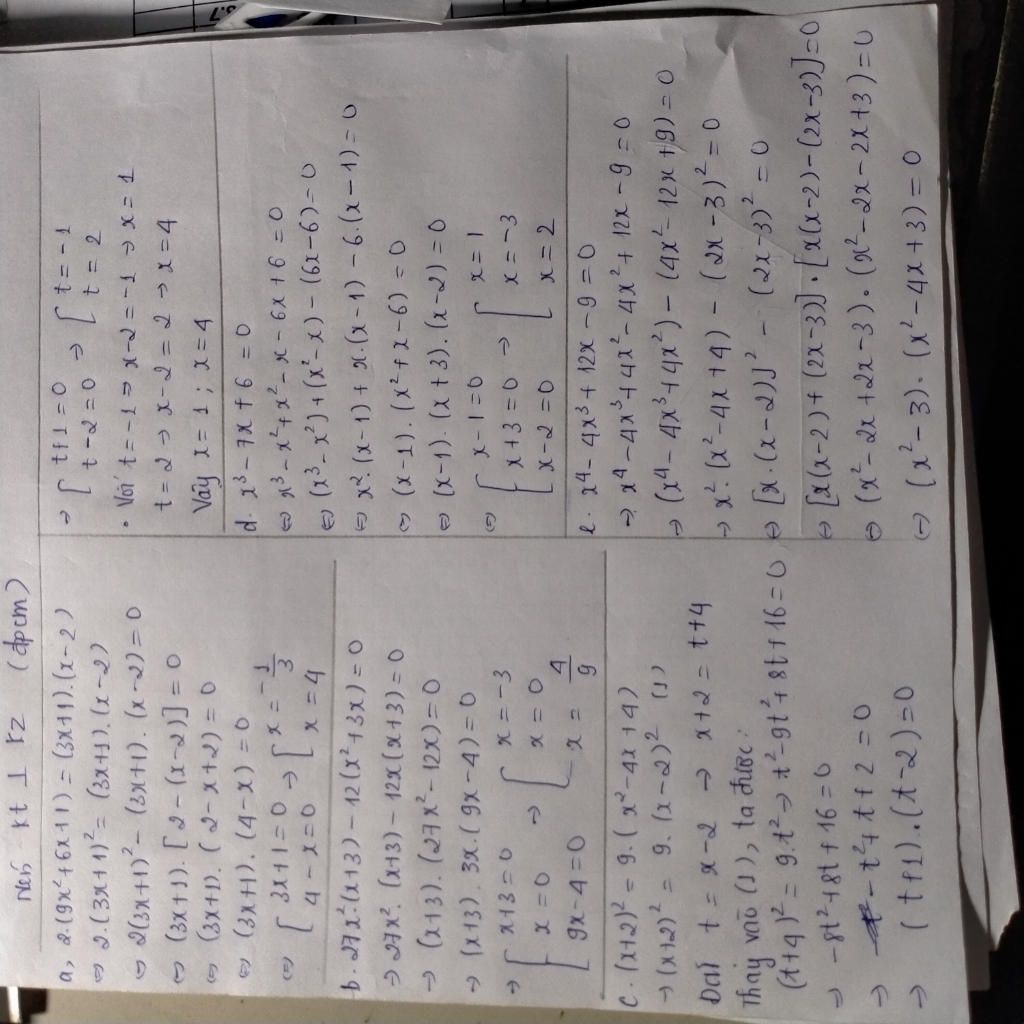 Nếu kt ⊥ kz (đpcm)
a, 2.(9x²+6x+11) = (3x+1).(x-2)
⇔ 2.(3x+1)² = (3x+1).(x-2)
⇔ 2(3x+1)² - (3x+1).(x-2) = 0
⇔ (3x+1).[2-(x-2)] = 0
⇔ (3x+1).(2-x+2) = 0
⇔ (3x+1).(4-x) = 0
⇔ [ 3x+1=0 → [ x = -1/3
4-x=0 x = 4
b. 27x²(x+3) - 12(x²+3x) = 0
→ 27x².(x+3) - 12x(x+3) = 0
→ (x+3).(27x²-12x) = 0
→ (x+3).3x.(9x-4) = 0
→ [ x+3=0 [ x = -3
x = 0 → x = 0
9x-4=0 x = 4/9
c. (x+2)² = 9.(x²-4x+4)
→ (x+2)² = 9.(x-2)² (1)
Đặt t = x-2 → x+2 = t+4
Thay vào (1), ta được:
(t+4)² = 9.t² → t²-9t²+8t+16 = 0
→ -8t²+8t+16 = 0
→ -t²+t+2 = 0
→ (t+1).(t-2) = 0
→ [ t+1=0 → [ t = -1
t-2=0 t = 2
• Với t = -1 ⇒ x-2 = -1 → x = 1
t = 2 → x-2 = 2 → x = 4
Vậy x = 1 ; x = 4
d. x³-7x+6 = 0
⇔ x³-x²+x²-x-6x+6 = 0
⇔ (x³-x²)+(x²-x)-(6x-6) = 0
⇔ x².(x-1)+x.(x-1)-6.(x-1) = 0
⇔ (x-1).(x²+x-6) = 0
⇔ (x-1).(x+3).(x-2) = 0
⇔ [ x-1=0 [ x = 1
x+3=0 → x = -3
x-2=0 x = 2
e. x⁴-4x³+12x-9 = 0
→ x⁴-4x³+4x²-4x²+12x-9 = 0
→ (x⁴-4x³+4x²)-(4x²-12x+9) = 0
→ x².(x²-4x+4)-(2x-3)² = 0
⇔ [x.(x-2)]² - (2x-3)² = 0
⇔ [x(x-2)+(2x-3)].[x(x-2)-(2x-3)] = 0
⇔ (x²-2x+2x-3).(x²-2x-2x+3) = 0
⇔ (x²-3).(x²-4x+3) = 0